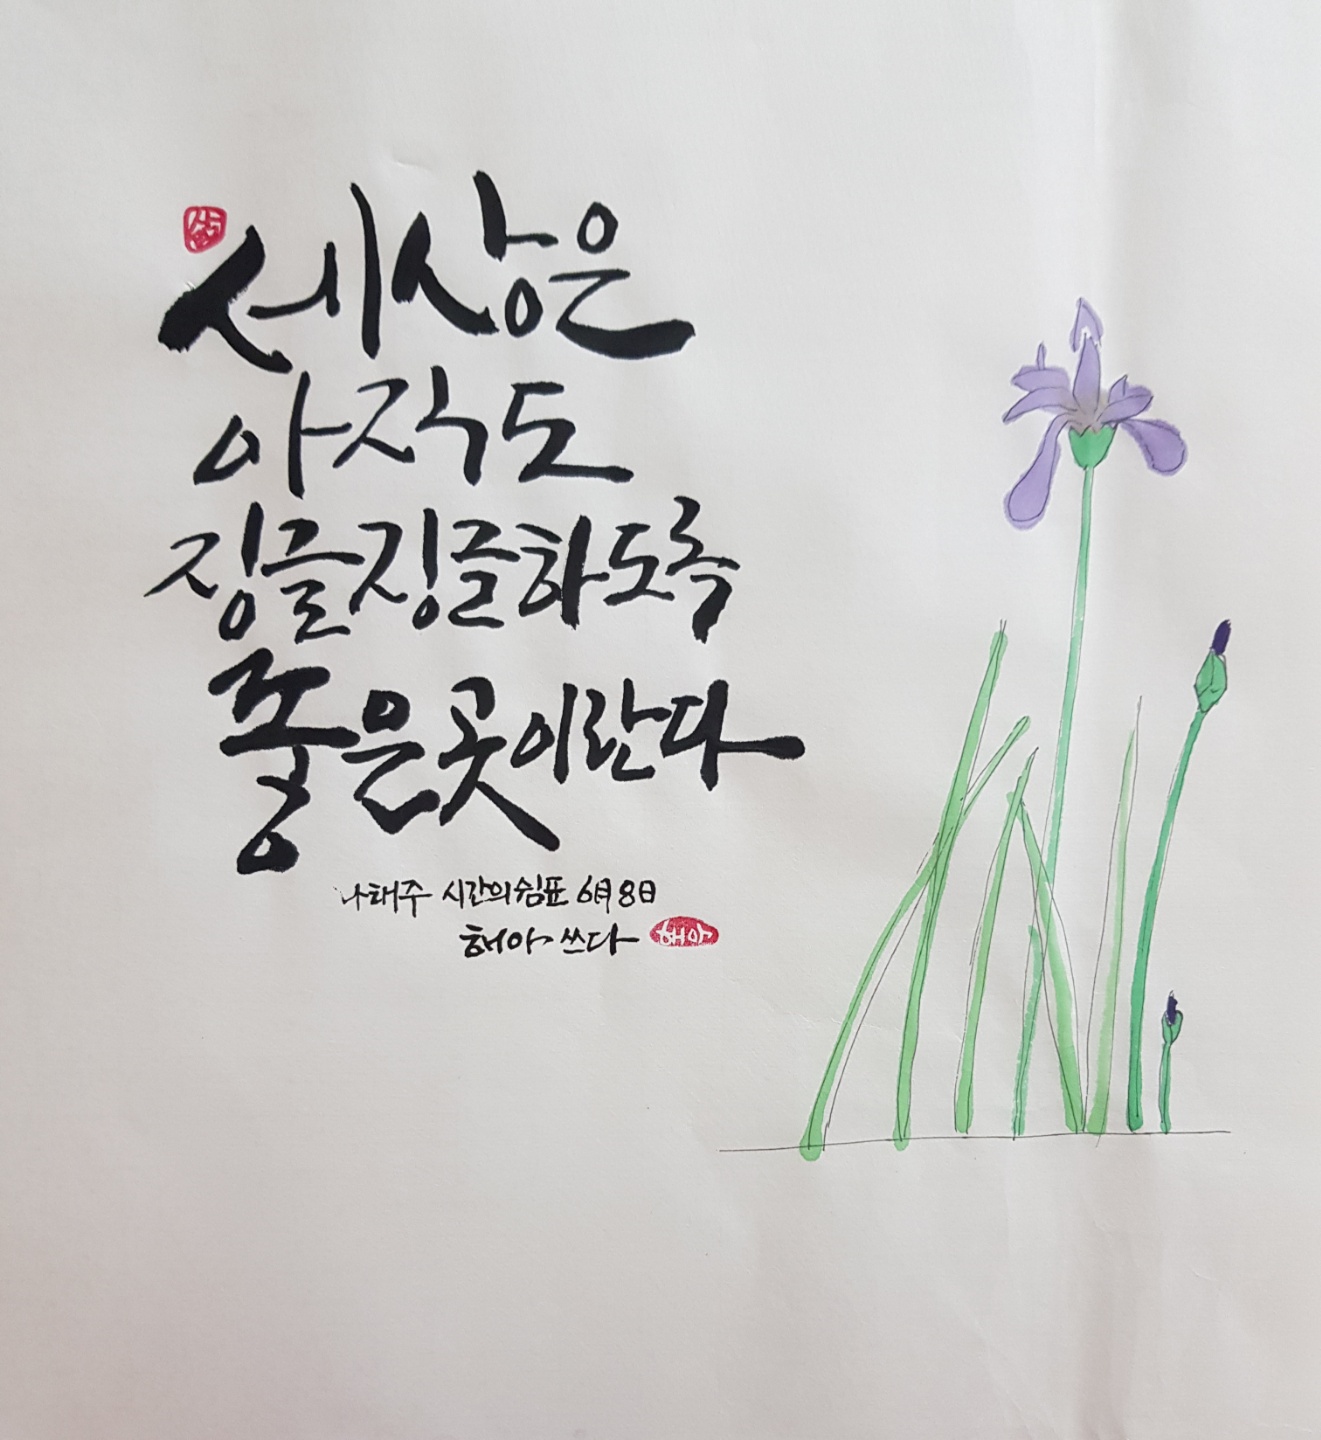 세상은
아직도
징글징글하도록
좋은 곳이란다
나태주 시간의쉼표 6月 8日
해아 쓰다 해아